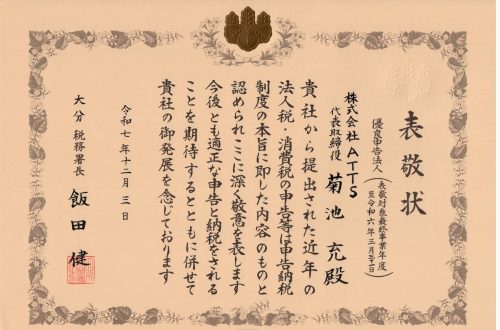 表敬状
優良申告法人
(表敬対象最終事業年度
至令和六年三月三十一日)
株式会社ATTS
代表取締役 菊池 充殿
貴社から提出された近年の
法人税・消費税の申告等は申告納税
制度の本旨に即した内容のものと
認められここに深く敬意を表します
今後とも適正な申告と納税をされる
ことを期待するとともに併せて
貴社の御発展を念じております
令和七年十二月三日
大分 税務署長 飯田 健